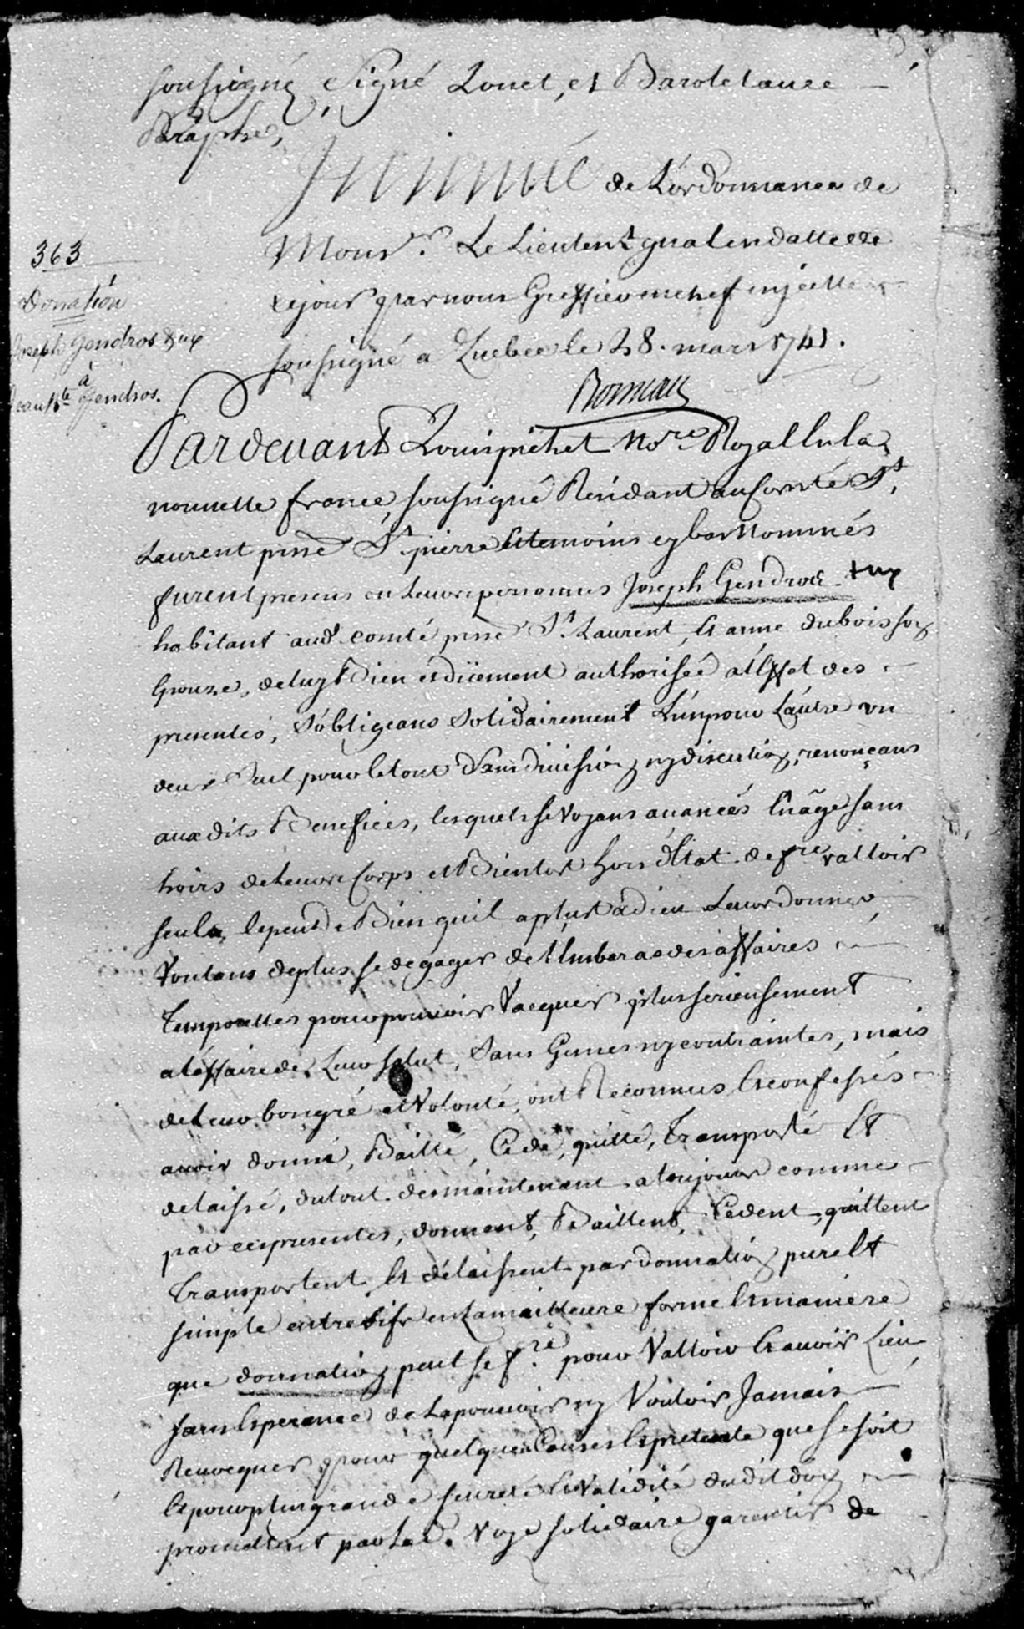 soussigné, Signé Louet, et Barolet auec
Paraphe,
Insinué de L'ordonnance de
Monsr. Le Lieutent gnal en datte de
ce jour par nous Greffier en chef en icelle
soussigné a Quebec le 28. mars 1741.
Boisseau
363
Donation
Joseph Gendros & ux
a
Jean Bte Gendros.
Pardeuant Louis pichet Nore Royal en la
nouuelle france, soussigné Residant au Comté St.
Laurent psse St pierre Et temoins cy bas Nommés
furent presens en Leurs personnes Joseph Gendros
habitant audt comté psse St. Laurent, Et anne dubois son
Epouze, de luy Bien et düement authorisée a l'Effet des
presentes, s'obligeans Solidairement L'un pour L'autre un
deux Seul pour le tout Sans diuision, ny discution, renonçans
auxdits Benefices, lesquels se Voyans auancés En âge sans
hoirs de Leurs Corps et Bientot hors d'Etat de fre valloir
seuls, le peu de Bien quil a plut a dieu Leur donner,
Voulans de plus se degager de l'Embaras des affaires
temporelles pour pouuoir Vacquer plus serieusement
a l'affaire de Leur salut, Sans Gennes ny contraintes, mais
de Leur bon gré et Volonté, ont Reconnus Et confessés
auoir donné, Baillé, Cedé, quitté, Transporté Et
delaissé, du tout des maintenant a toujours comme
par ces presentes, donnent, Baillent, Cedent, quittent
Transportent Et délaissent par donnation pure Et
simple entre vifs en La meilleure forme Et maniere
que donnation peut se fre pour Valloir Et auoir Lieu
sans Esperance de Le pouuoir ny Vouloir Jamais
Reuoquer pour quelque Causes Et pretexte que se soit
Et pour plus grande seureté Et Validité dudit don
promettent par lad. Voye solidaire garentir de